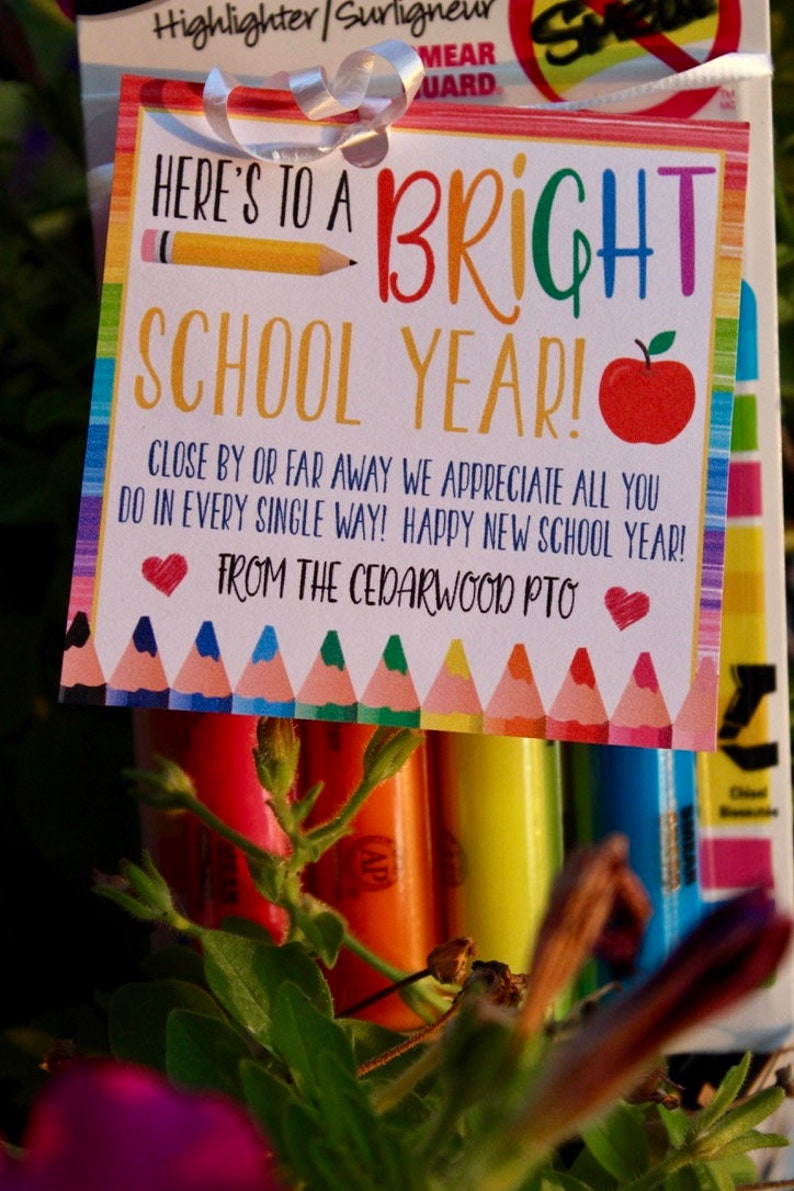 Highlighter/Surligneur
SMEAR
GUARD
HERE'S TO A BRIGHT
SCHOOL YEAR!
CLOSE BY OR FAR AWAY WE APPRECIATE ALL YOU
DO IN EVERY SINGLE WAY! HAPPY NEW SCHOOL YEAR!
FROM THE CEDARWOOD PTO
Chisel
Biseautée
AP